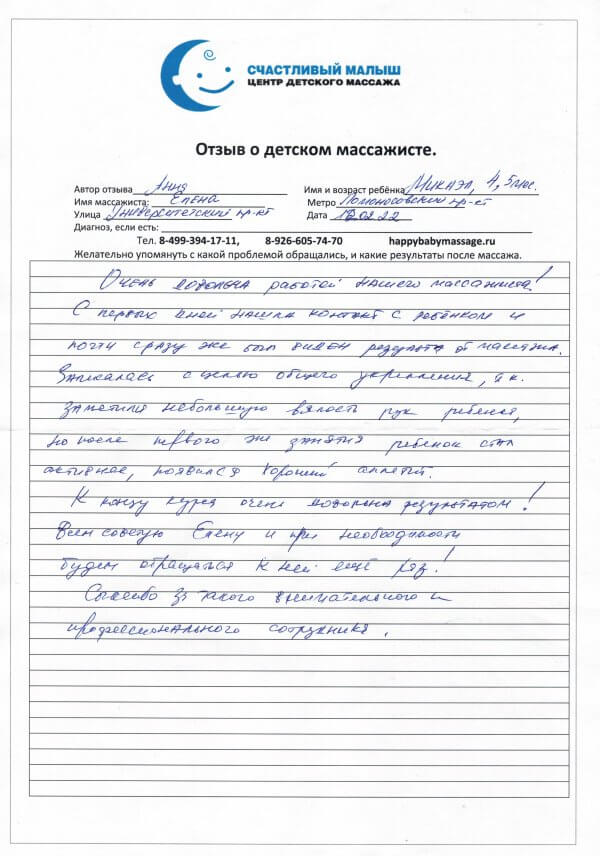 СЧАСТЛИВЫЙ МАЛЫШ
ЦЕНТР ДЕТСКОГО МАССАЖА
Отзыв о детском массажисте.
Автор отзыва Анна Имя и возраст ребёнка Микаэл, 4,5 мес.
Имя массажиста: Елена Метро Ломоносовский пр-кт
Улица Университетский пр-кт Дата 12.02.22
Диагноз, если есть:
Тел. 8-499-394-17-11, 8-926-605-74-70 happybabymassage.ru
Желательно упомянуть с какой проблемой обращались, и какие результаты после массажа.
Очень довольна работой нашего массажиста!
С первых дней нашла контакт с ребёнком и
почти сразу же был виден результат от массажа.
Записалась с целью общего укрепления, т.к.
заметили небольшую вялость рук ребенка,
но после первого же занятия ребенок стал
активнее, появился хороший аппетит.
К концу курса очень довольна результатом!
Всем советую Елену и при необходимости
будем обращаться к ней ещё раз!
Спасибо за такого внимательного и
профессионального сотрудника.